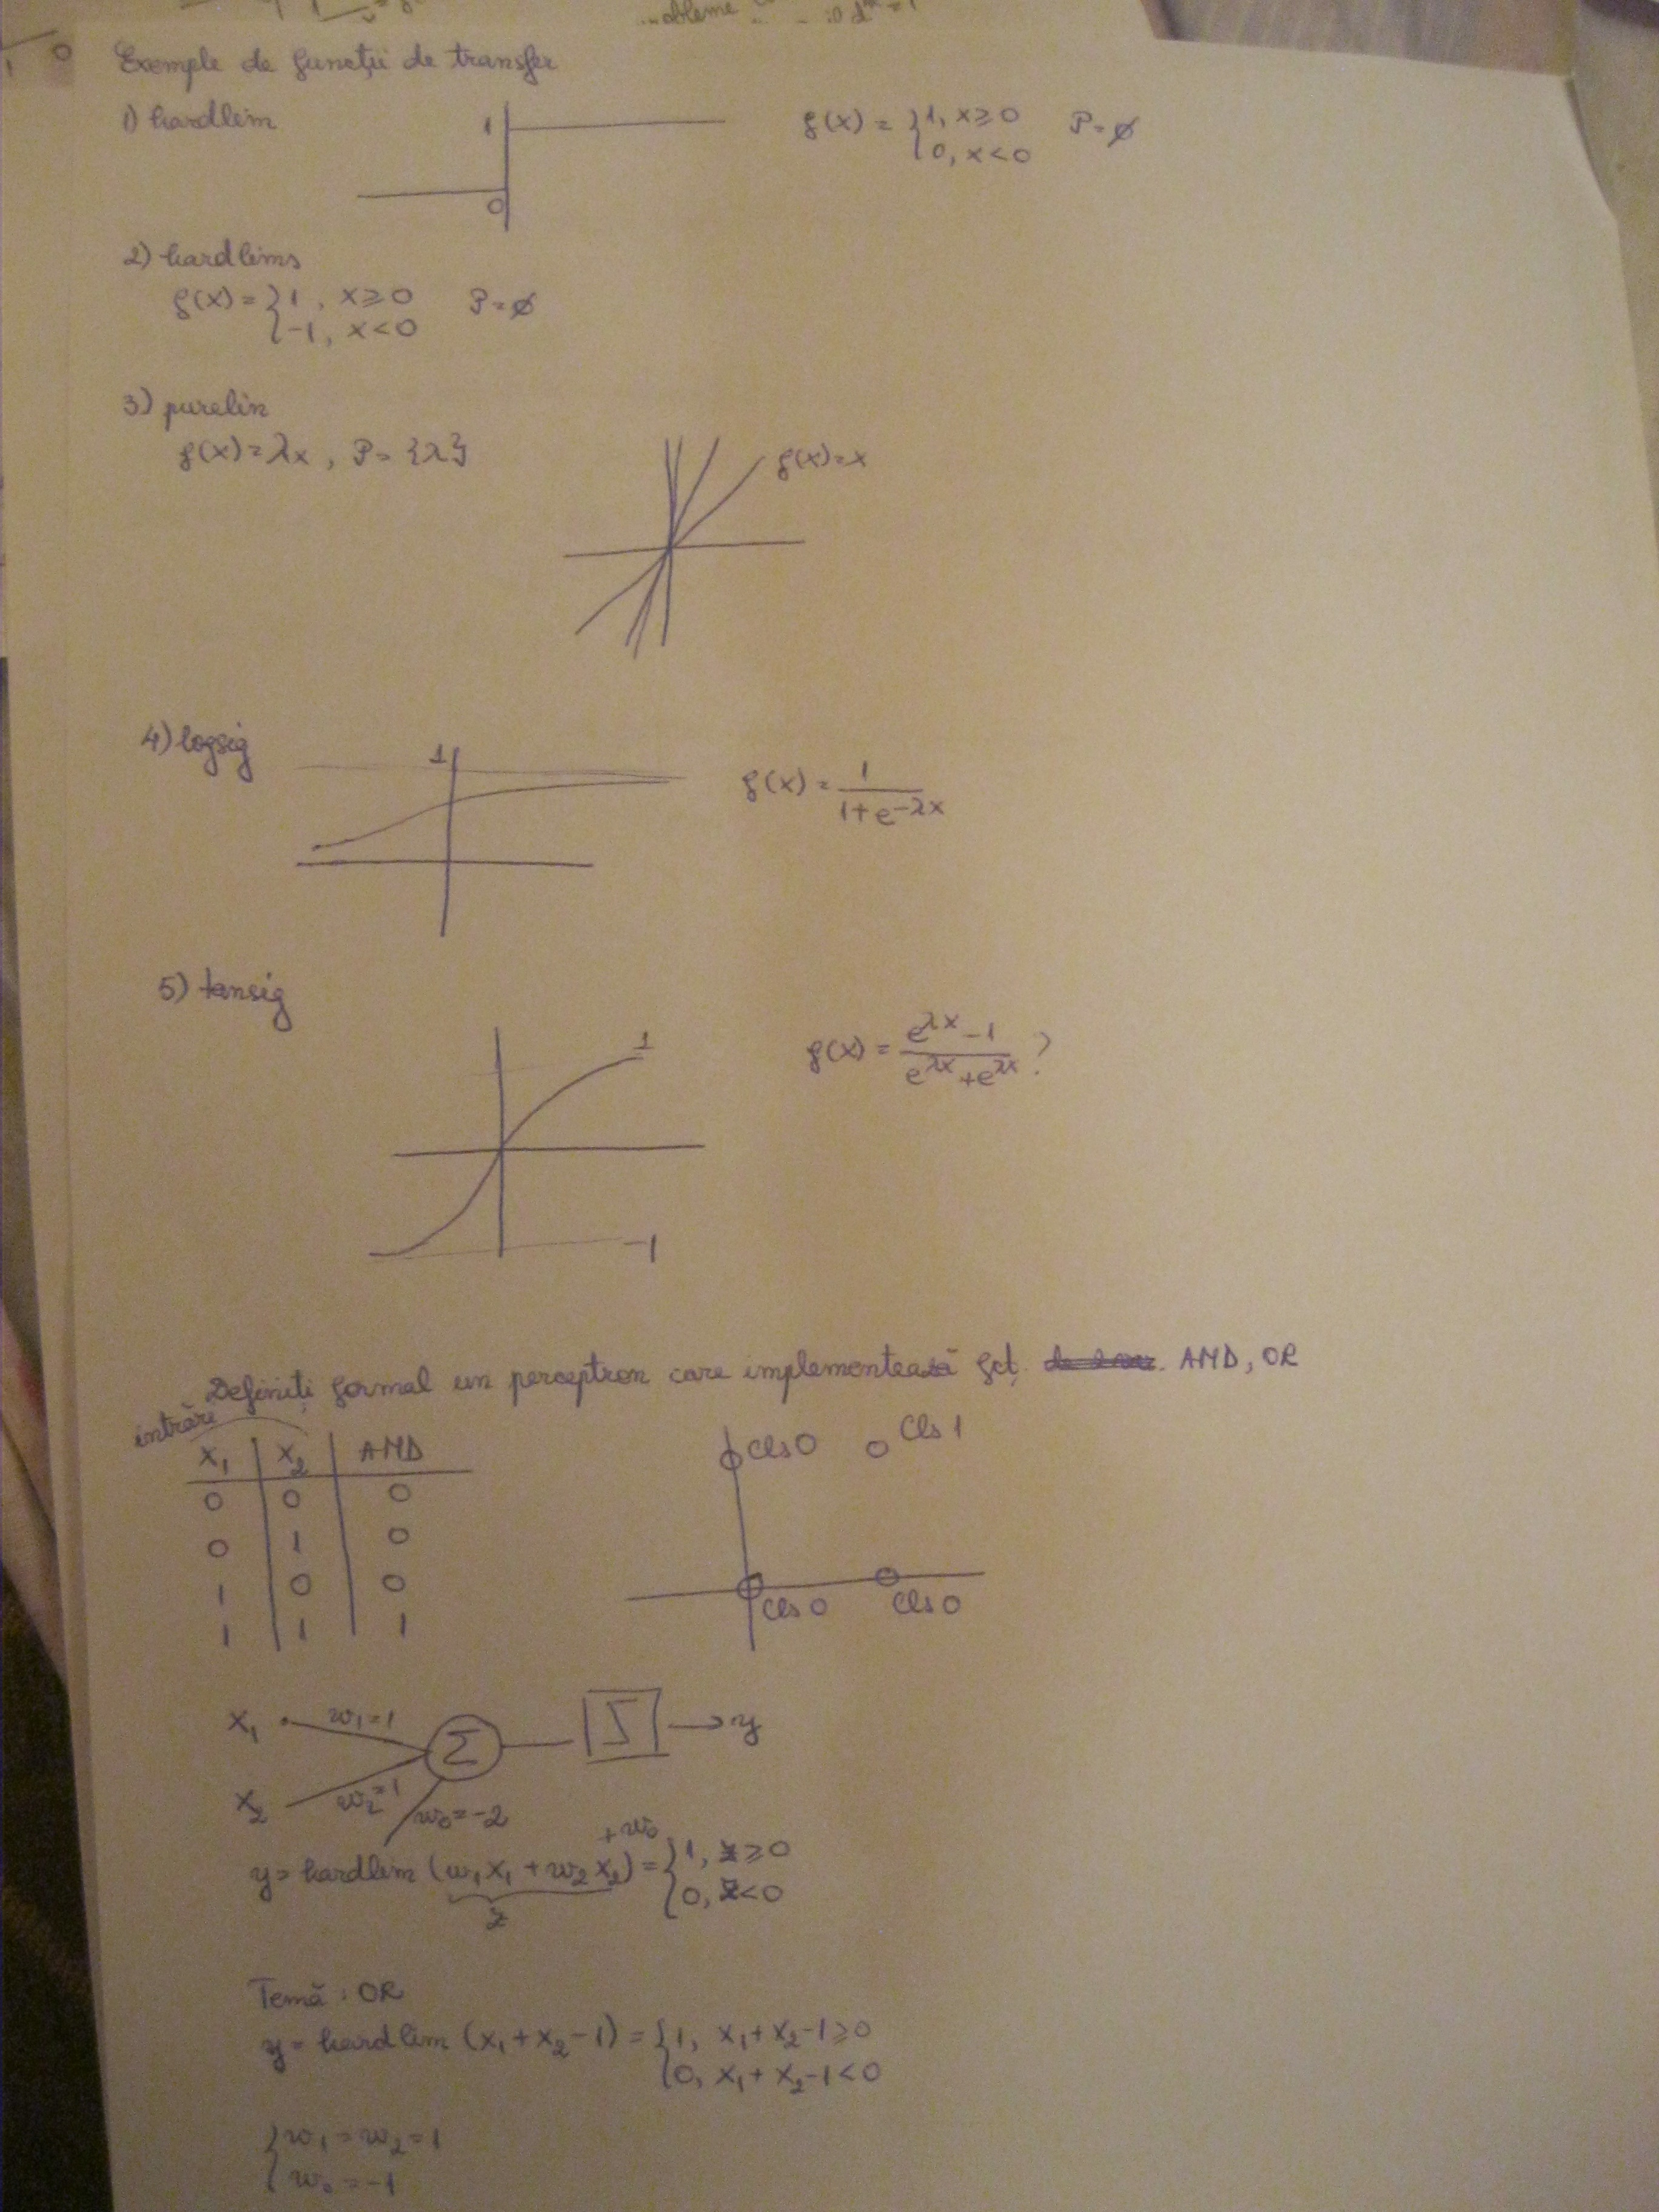 Exemple de funcții de transfer
1) hardlim
1
0
f(x) = { 1, x≥0 P=∅
0, x<0
2) hardlims
f(x) = { 1, x≥0 P=∅
-1, x<0
3) purelin
f(x)=λx, P={λ}
f(x)=x
4) logsig
1
f(x) = 1/(1+e^-λx)
5) tansig
1
-1
f(x) = (e^λx - 1)/(e^λx + e^λx) ?
Definiți formal un perceptron care implementează fct. AND, OR
intrări
x₁ | x₂ | AND
0 | 0 | 0
0 | 1 | 0
1 | 0 | 0
1 | 1 | 1
Cls 0 Cls 1
Cls 0 Cls 0
x₁ w₁=1 Σ → y
x₂ w₂=1 w₀=-2
y = hardlim (w₁x₁ + w₂x₂ + w₀) = { 1, z≥0
0, z<0
z
Temă: OR
y = hardlim (x₁+x₂-1) = { 1, x₁+x₂-1≥0
0, x₁+x₂-1<0
{ w₁=w₂=1
w₀=-1